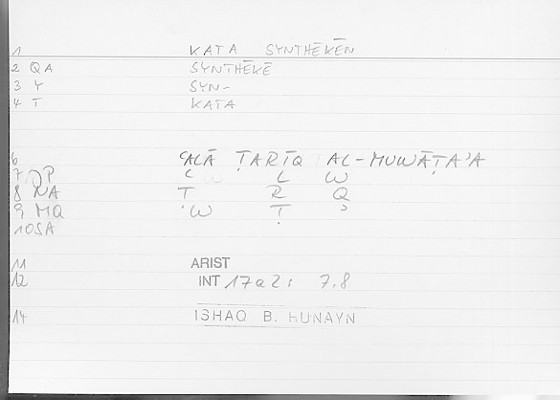 1 KATA SYNTHĒKĒN
2 QA SYNTHĒKĒ
3 Y SYN-
4 T KATA
6 ʿALĀ ṬARĪQ AL-MUWĀṬAʾA
7 P ʿ L W
8 NA Ṭ R Q
9 MQ W Ṭ ʾ
10 SA
11 ARIST
12 INT 17a2; 7.8
14 ISHAQ B. HUNAYN